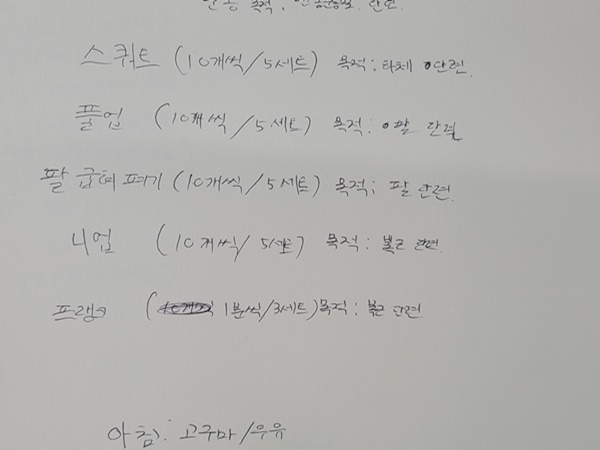 목적: 단련
스쿼트 (10개씩/5세트) 목적: 하체 단련
풀업 (10개씩/5세트) 목적: 팔 단련
팔 굽혀 펴기 (10개씩/5세트) 목적: 팔 단련
니업 (10개씩/5세트) 목적: 복근 단련
프랭크 (1분씩/3세트) 목적: 복근 단련
아침: 고구마/우유